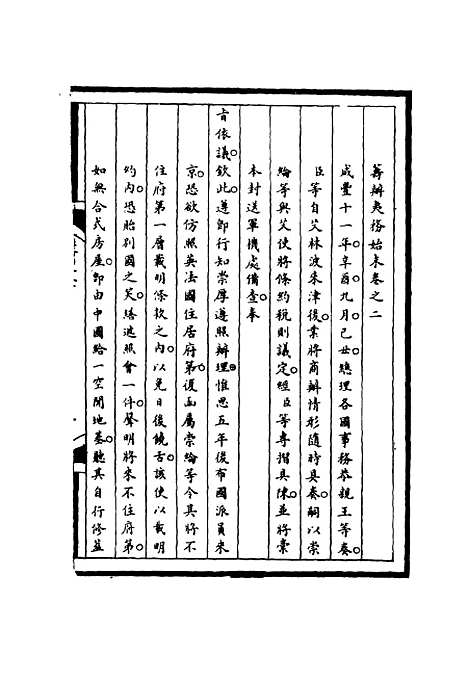 籌辦夷務始末卷之二
咸豐十一年辛酉九月己丑總理各國事務恭親王等奏
臣等自艾林波來津後業將商辦情形隨時具奏嗣以崇
綸等與艾使將條約稅則議定經臣等專摺具陳並將稾
本封送軍機處備查奉
旨依議欽此遵即行知崇厚遵照辦理惟思五年後布國派員來
京恐欲仿照英法國住居府第復函屬崇綸等令其將不
住府第一層載明條款之內以免日後饒舌該使以載明
約內恐貽別國之笑繕遞照會一件聲明將來不住府第
如無合式房屋即由中國給一空閒地基聽其自行修蓋